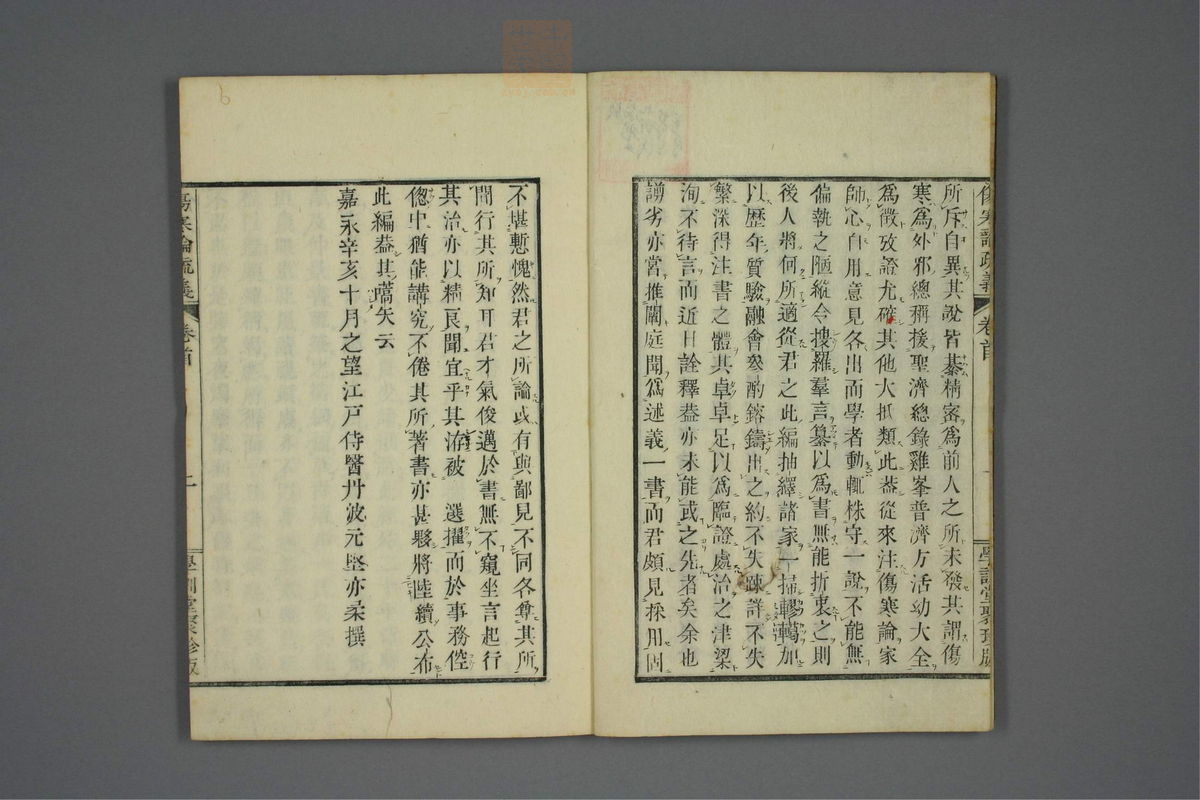 傷寒論疏義 卷首 學訓堂聚珍版
所斥自異其說皆綦精密爲前人之所未發其謂傷
寒爲外邪總稱援聖濟總錄雞峯普濟方活幼大全
爲徵攷證尤確其他大抵類此葢從來注傷寒論家
師心自用意見各出而學者動輒株守一說不能無
偏執之陋縱令搜羅羣言纂以爲書無能折衷之則
後人將何所適從君之此編抽繹諸家一掃轇轕加
以歷年質驗融會參酌鎔鑄出之約不失疎詳不失
繁深得注書之體其卓卓足以爲臨證處治之津梁
洵不待言而近日詮釋葢亦未能或之先者矣余也
譾劣亦嘗推闡庭聞爲述義一書而君頗見採用固
不堪慙愧然君之所論或有與鄙見不同各尊其所
聞行其所知耳君才氣俊邁於書無不窺坐言起行
其治亦以精良聞宜乎其洊被 選擢而於事務倥
偬中猶能講究不倦其所著書亦甚夥將陸續公布
此編葢其嚆矢云
嘉永辛亥十月之望江戸侍醫丹波元堅亦柔撰
傷寒論疏義 卷首 二 學訓堂聚珍版